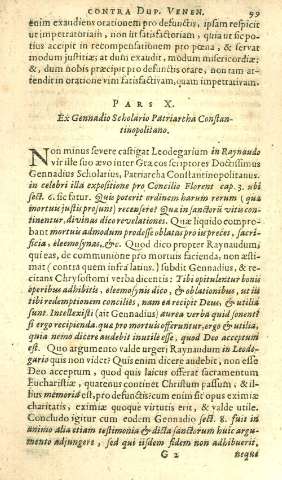 CONTRA DUP. VENEN. 99
enim exaudiens orationem pro defunctis, ipsam respicit
ut impetratoriam, non ſit ſatisfactoriam, quia ut ſic po-
tius accipit in recompenſationem pro pœna, & ſervat
modum juſtitiæ; at dum exaudit, modum miſericordiæ;
&, dum nobis præcipit pro defunctis orare, non tam at-
tendit in oratione vim ſatisfactivam, quam impetrativam.
PARS X.
Ex Gennadio Scholario Patriarcha Conſtan-
tinopolitano.
Non minus ſevere caſtigat Leodegarium in Raynaudo
vir ille ſuo ævo inter Græcos ſcriptores Doctiſſimus
Gennadius Scholarius, Patriarcha Conſtantinopolitanus.
in celebri illa expoſitione pro Concilio Florent cap. 3. ubi
ſect. 6. ſic fatur. Quis poterit ordinem harum rerum ( quæ
mortuis juſtis proſunt) recenſere? Quæ in ſanctorū vitis con-
tinentur, divinus dico revelationes. Quæ liquido compro-
bant mortuis admodum prodeſſe oblatas pro iis preces, ſacri-
ficia, eleemoſynas, &c. Quod dico propter Raynaudum,
qui eas, de communione pro mortuis facienda, non æſti-
mat ( contra quem infra latius.) ſubdit Gennadius, & re-
citans Chryſoſtomi verba dicentis: Tibi opitulentur bonis
operibus adhibitis, eleemoſynis dico, & oblationibus, ut iis
tibi redemptionem conciliēs, nam ea recipit Deus, & utilia
ſunt. Intellexiſti (ait Gennadius) aurea verba quid ſonent?
ſi ergo recipienda quæ pro mortuis offeruntur, ergo & utilia,
quia nemo dicere audebit inutile eſſe, quod Deo acceptum
eſt. Quo argumento valde urgeri Raynaudum in Leode-
gario quis non videt? Quis enim dicere audebit, non eſſe
Deo acceptum, quod quis laicus offerat ſacramentum
Euchariſtiæ, quatenus continet Chriſtum paſſum, & il-
lius memoriā eſt, pro defunctis? cum enim ſic opus eximiæ
charitatis, eximiæ quoque virtutis erit, & valde utile.
Concludo igitur cum eodem Gennadio ſect. 8. fuit in
animo alia etiam teſtimonia & dicta ſanctorum huic argu-
mento adjungere, ſed qui iiſdem fidem non adhibuerit,
G 2 neque